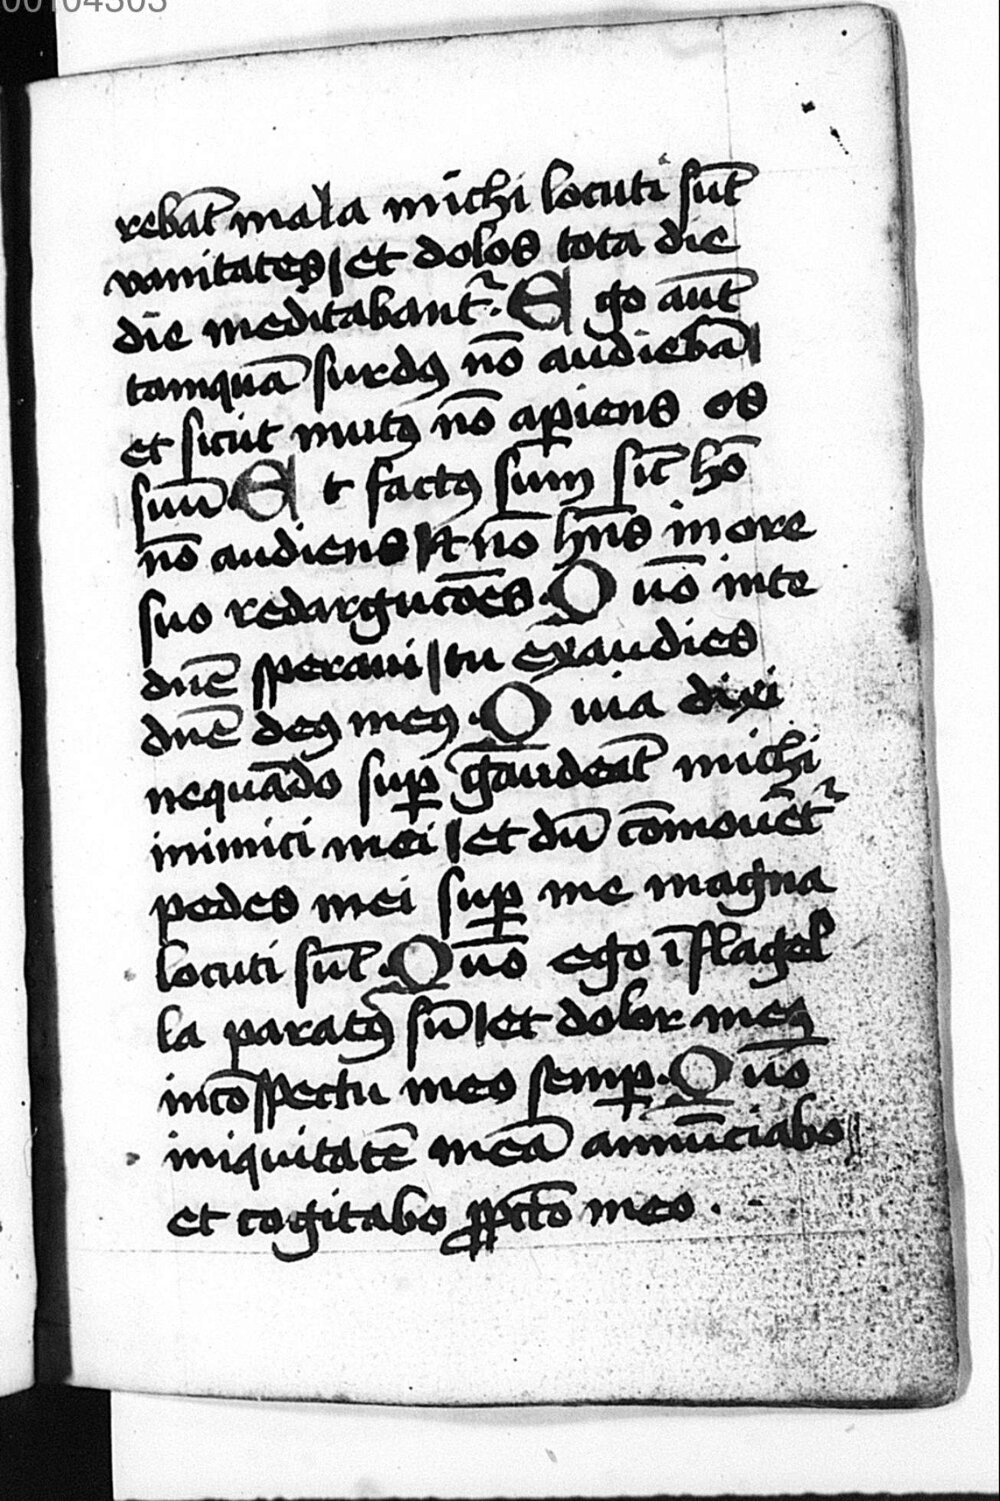 00104303
rebāt mala michi locuti sūt
vanitates / et dolos tota die
die meditabantᷣ. Ego aūt
tamquā surdꝰ nō audiebā /
et sicut mutꝰ nō aꝑiens os
suū. Et factꝰ sum sic̄ hō
nō audiens / et nō hn̄s in ore
suo redargucōes. Qūo in te
dn̄e speravi / tu exaudies
dn̄e deꝰ meꝰ. Quia dixi
nequādo suꝑ gāudeāt michi
inimici mei / et dū cōmovētᷣ
pedes mei suꝑ me magna
locuti sūt. Qūo ego ī flagel
la paratꝰ sū / et dolor meꝰ
incōspectu meo semꝑ. Qūo
iniquitatē meā annūciabo //
et cogitabo ꝓ pctō meo .